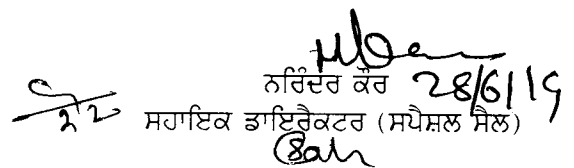 ਨਰਿੰਦਰ ਕੌਰ 28/6/19
ਸਹਾਇਕ ਡਾਇਰੈਕਟਰ (ਸਪੈਸ਼ਲ ਸੈਲ)